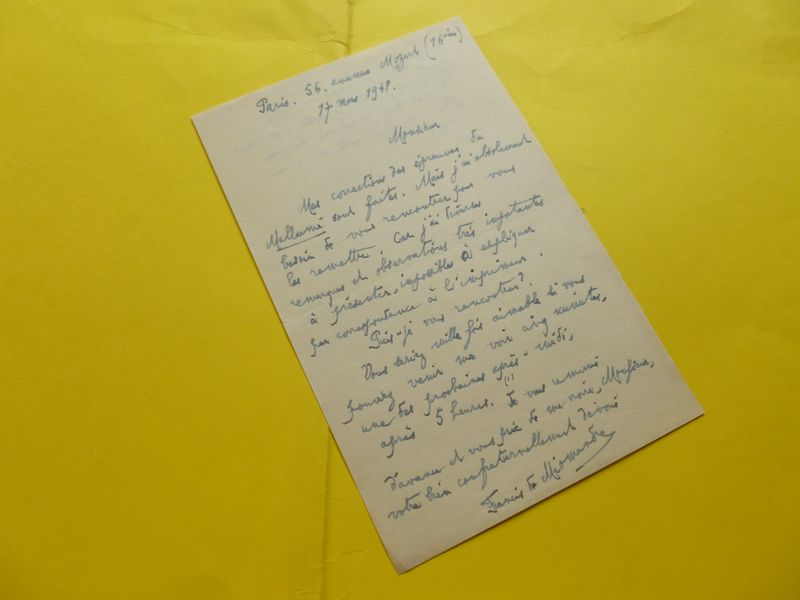 Paris. 56. avenue Mozart (16ème)
17 mars 1948.
Monsieur
Mes corrections des épreuves du
Mallarmé sont faites. Mais j'ai absolument
besoin de vous rencontrer pour vous
les remettre. Car j'ai diverses
remarques et observations très importantes
à présenter, impossibles à expliquer
par correspondance à l'imprimeur.
Puis-je vous rencontrer?
Vous seriez mille fois aimable si vous
pouviez venir me voir cinq minutes,
une des prochaines après-midi,
après 5 heures. (1) Je vous remercie
d'avance et vous prie de me croire, Monsieur,
votre bien confraternellement dévoué
Francis de Miomandre